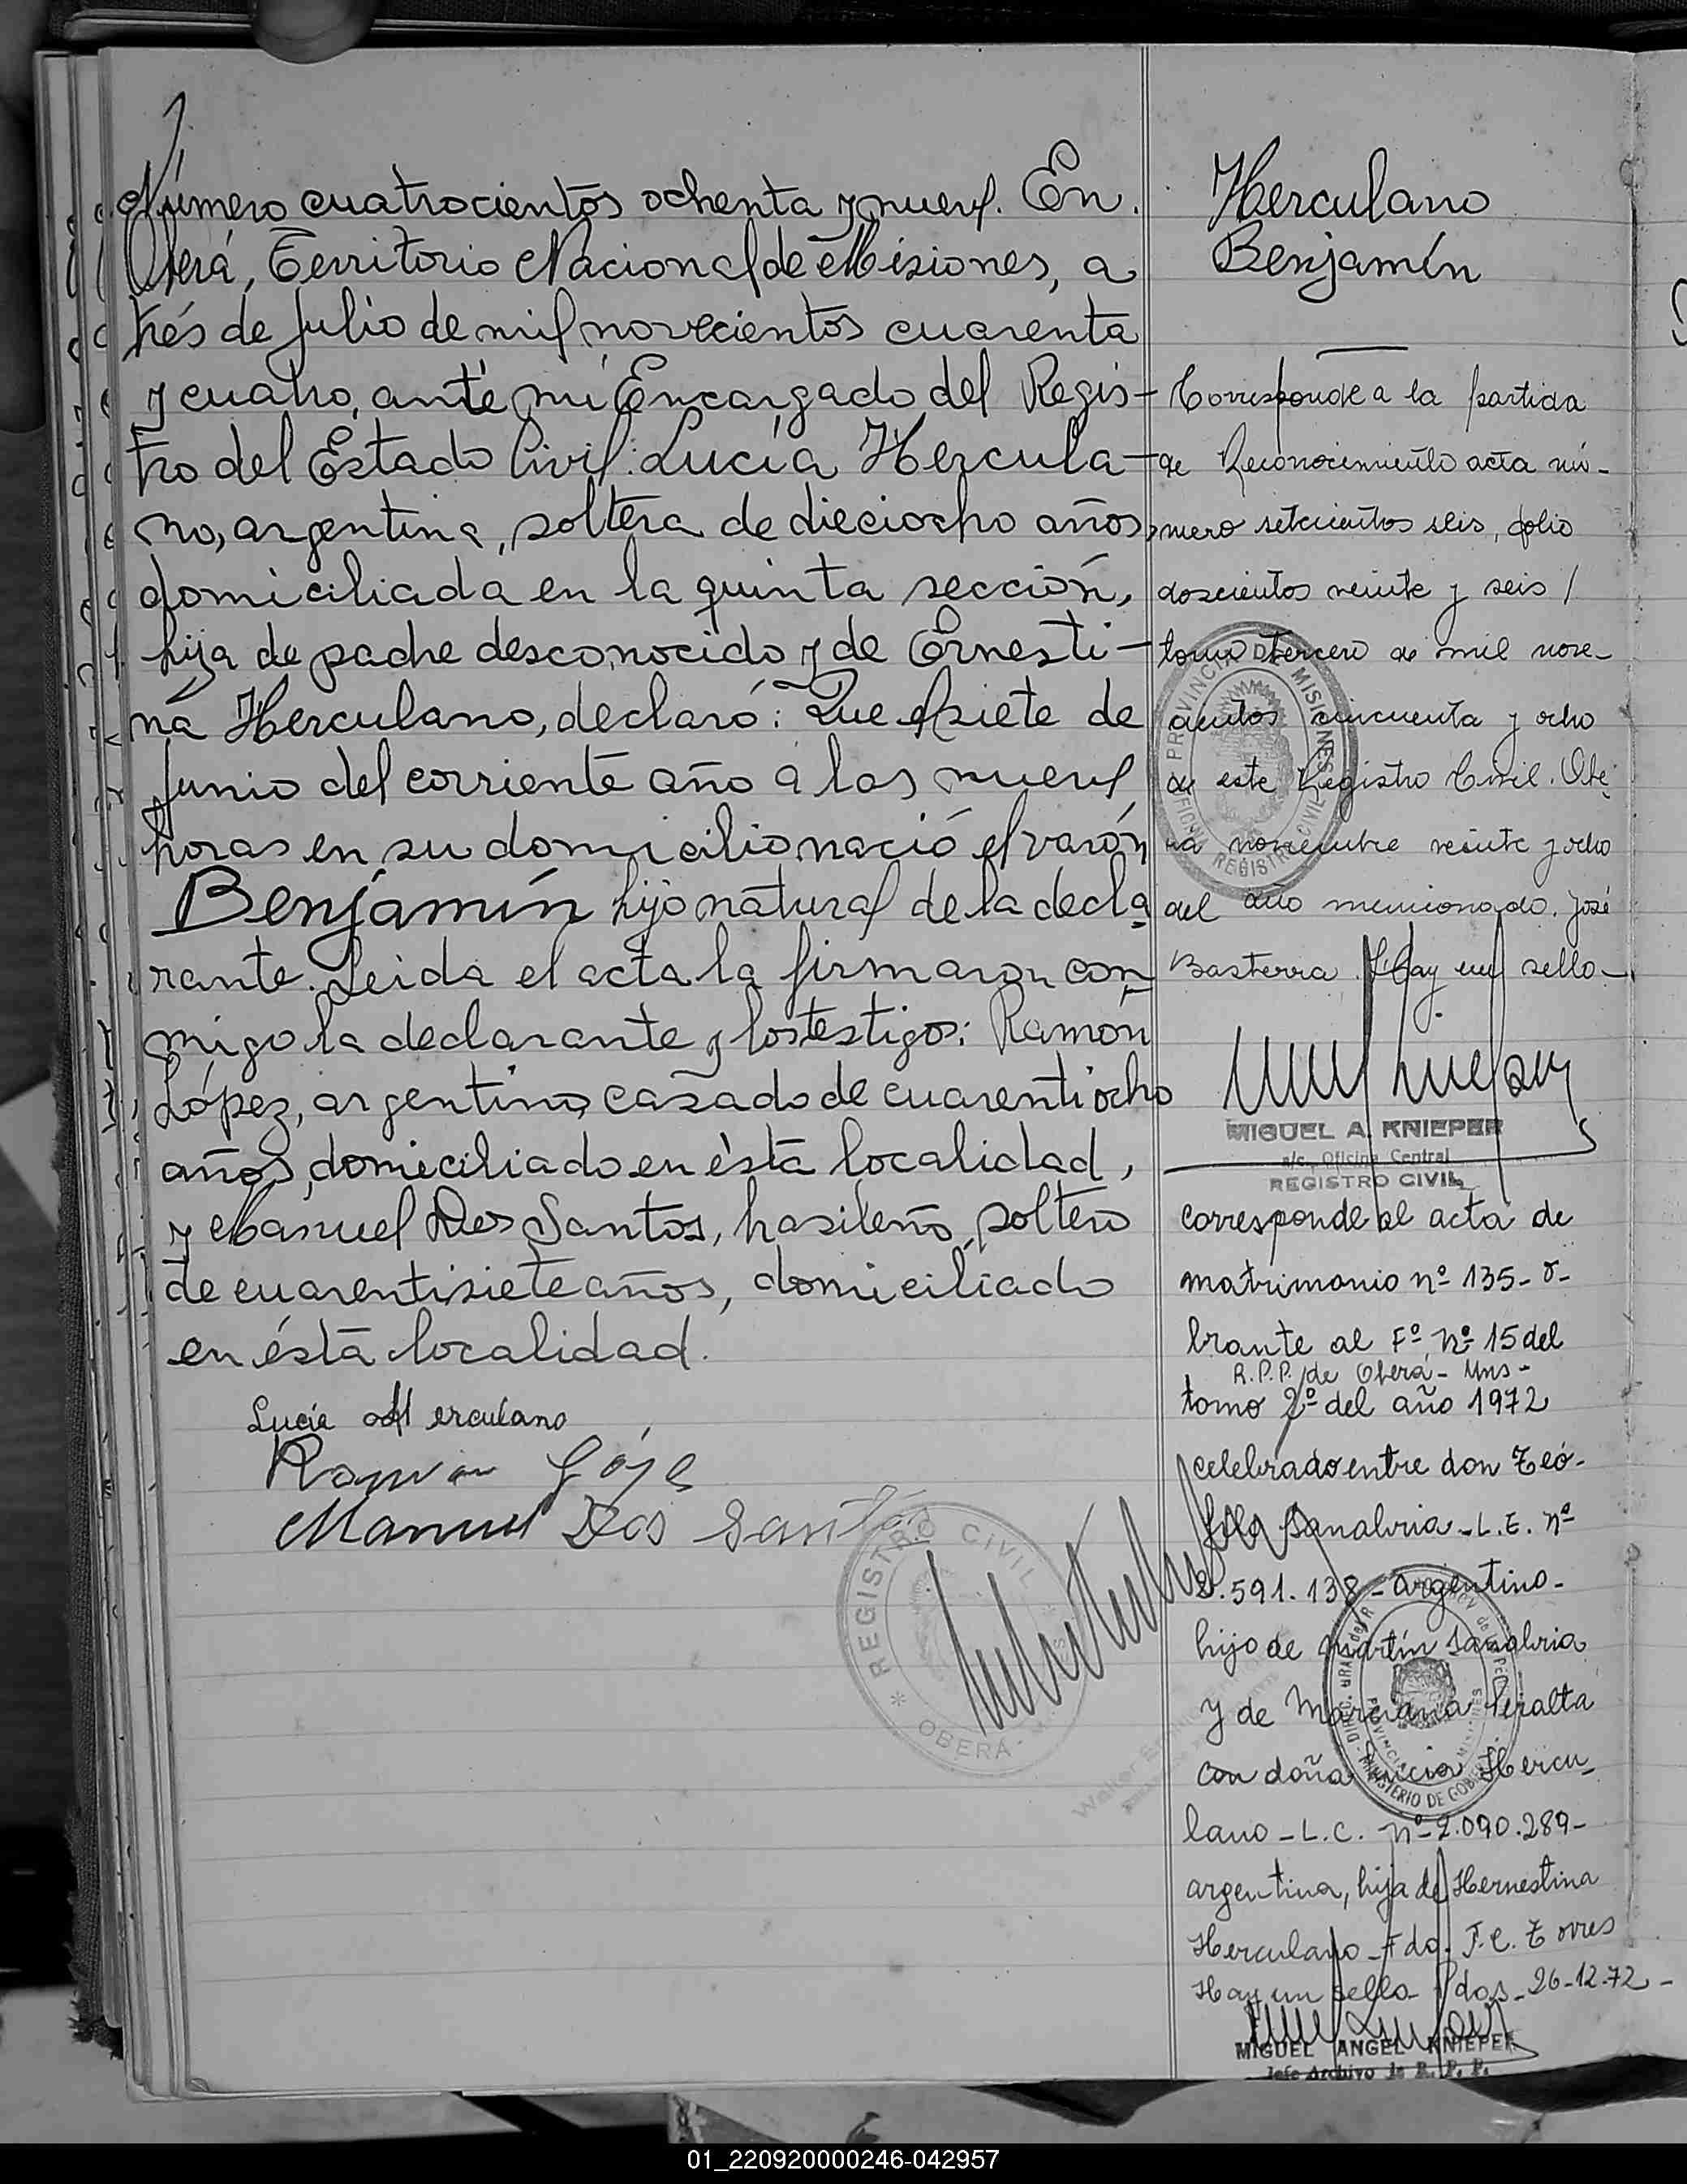 Número cuatrocientos ochenta y nueve. En
Oberá, Territorio Nacional de Misiones, a
trés de Julio de mil novecientos cuarenta
y cuatro, ante mí Encargado del Regis-
tro del Estado Civil: Lucía Hercula-
no, argentina, soltera de dieciocho años,
domiciliada en la quinta sección,
hija de padre desconocido y de Ernesti-
na Herculano, declaró: Que el siete de
Junio del corriente año a las nueve
horas en su domicilio nació el varón
Benjamín hijo natural de la decla
rante. Leida el acta la firmaron con
migo la declarante y los testigos: Ramón
López, argentino, casado de cuarentiocho
años, domiciliado en ésta localidad,
y Manuel Dos Santos, brasileño, soltero
de cuarentisiete años, domiciliado
en ésta localidad.
Lucia Herculano
Ramon
Manuel Dos Santos
REGISTRO CIVIL
OBERÁ
Herculano
Benjamín
Corresponde a la partida
de Reconocimiento acta nú-
mero setecientos seis, folio
doscientos veinte y seis /
tomo tercero de mil nove-
cientos cincuenta y ocho
de este Registro Civil. Obe
rá noviembre veinte y ocho
del año mencionado. José
Basterra. Hay un sello.
PROVINCIA DE MISIONES
REGISTRO CIVIL
MIGUEL A. KNIEPER
a/c. Oficina Central
REGISTRO CIVIL
corresponde al acta de
matrimonio nº 135- o-
brante al Fº nº 15 del
R.P.P. de Oberá - Mns -
tomo 2º del año 1972
celebrado entre don Teó-
filo Sanabria - L.E. nº
591.138 - argentino -
hijo de Martín Sanabria
y de Marciana Peralta
con doña Lucia Hercu_
lano - L.C. nº 2.090.289 -
argentina, hija de Hernestina
Herculano - Fdo. F.C. Torres
Hay un sello - Pdas - 26-12-72 -
MINISTERIO DE GOBIERNO
MIGUEL ANGEL KNIEPER
Jefe Archivo R. P. P.
01_220920000246-042957